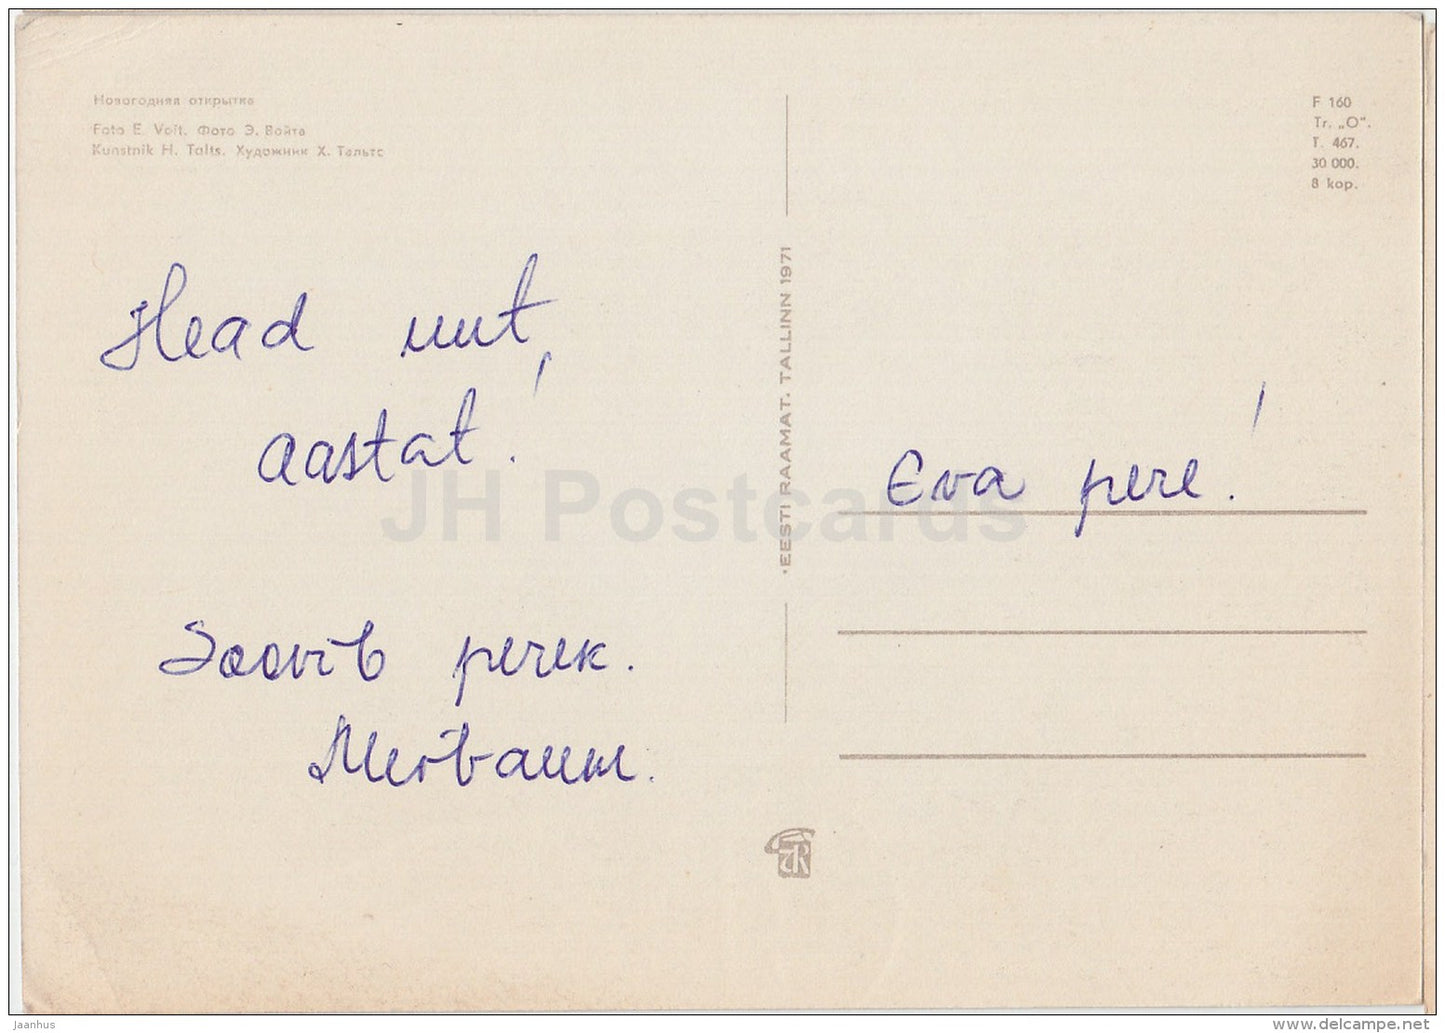 Новогодняя открытка
Foto E. Voit. Фото Э. Войта
Kunstnik H. Talts. Художник Х. Тальтс
F 160
Tr. „O”.
T. 467.
30 000.
8 kop.
Head uut,
aastat!
Soovib perek.
Meibaum.
EESTI RAAMAT. TALLINN 1971
Eva pere!
JH Postcards
jaanhus
www.delcampe.net